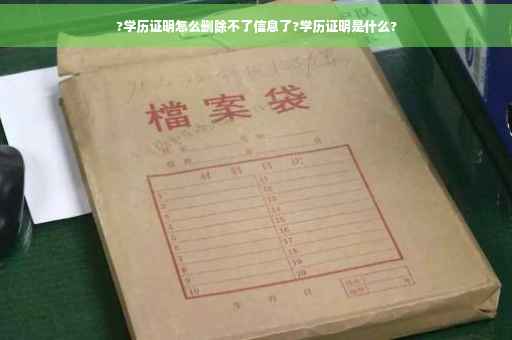 ?学历证明怎么删除不了信息了?学历证明是什么?
檔案袋
材料目次
1 11
2 12
3 13
4 14
5 15
6 16
7 17
8 18
9 19
10 20
年 月 日